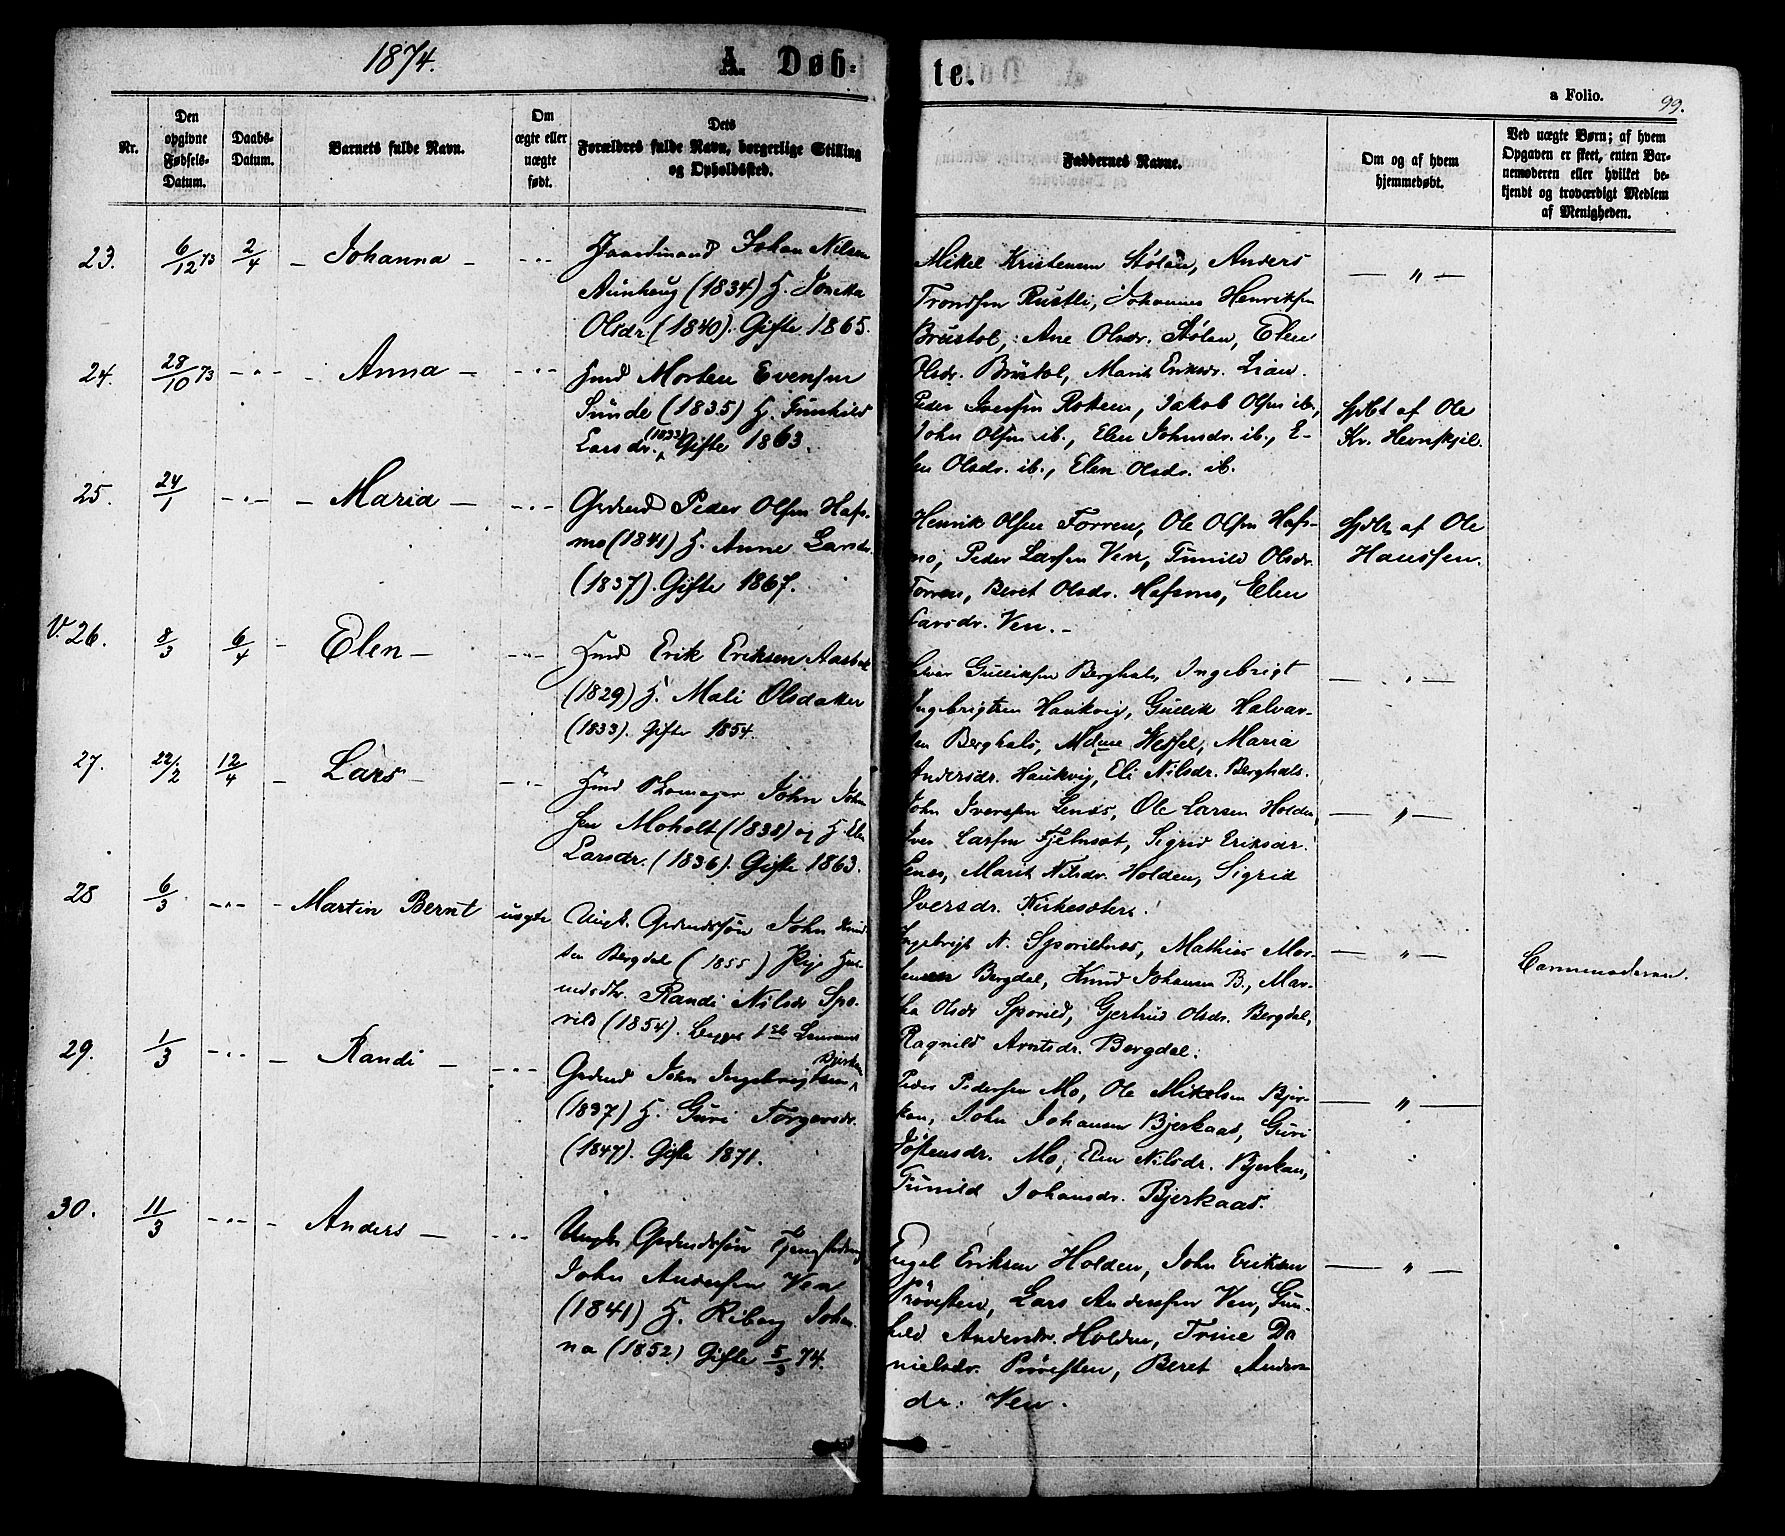 1874.
A. Døb-
te.
a Folio. 99.
Nr.
Den
opgivne
Fødsels-
Datum.
Daabs-
Datum.
Barnets fulde Navn.
Om
ægte eller
uægte
født.
Dets
Forældres fulde Navn, borgerlige Stilling
og Opholdssted.
Faddernes Navne.
Om og af hvem
hjemmedøbt.
Ved uægte Børn; af hvem
Opgaven er skeet, enten Bar-
nemoderen eller hvilket be-
kjendt og troværdigt Medlem
af Menigheden.
23. 6/12 73 2/4 – Johanna – -"-
Gaardmand Johan Nilsen
Aunhaug (1834) H. Jonetta
Olsdr. (1840). Gifte 1865.
Mikel Kristensen Stølan, Anders
Trondsen Rustli, Johannes Henriksen
Brustøl, Ane Olsdr. Stølen, Elen
Olsdr. Brustøl, Marit Eriksdr. Lian.
— " —
24. 28/10 73 -"- – Anna – -"-
Hmd Morten Evensen
Sunde (1835) H. Gunhild
Larsdr. (1833) Gifte 1863.
Peder Iversen Roken, Jakob Olsen ib.,
John Olsen ib., Elen Johnsdr. ib., E-
len Olsdr. ib., Elen Olsdr. ib.
Hjdbt af Ole
Kr. Hevnskjel.
25. 24/1 -"- – Maria – -"-
Grdmd Peder Olsen Hafs-
mo (1841) H. Anne Larsdr.
(1837). Gifte 1867.
Henrik Olsen Forren, Ole Olsen Hafs-
mo, Peder Larsen Ven, Gunild Olsdr.
Forren, Beret Olsdr. Hafsmo, Elen
Larsdr. Ven. –
Hjdbt af Ole
Hanssen.
V. 26. 8/3 6/4 – Elen – -"-
Hmd Erik Eriksen Aasbak
(1829) H. Mali Olsdatter
(1833). Gifte 1854.
Halvor Gulliksen Berghals, Ingebrigt
Ingebrigtsen Haukvig, Gullik Halvor-
sen Berghals, Mdme Wessel, Maria
Andersdr. Haukvig, Eli Nilsdr. Berghals.
— " —
27. 22/2 12/4 – Lars – -"-
Hmd Skomager John John-
sen Moholt (1838) og H. Elen
Larsdr. (1836). Gifte 1863.
John Iversen Lenes, Ole Larsen Holden,
Iver Larsen Fjelnset, Sigrid Eriksdr.
Lenes, Marit Nilsdr. Holden, Sigrid
Iversdr. Kirkesæter.
— " —
28 6/3 -"- – Martin Bernt uægte
Ungk. Grdmdssøn John Knud-
sen Bergdal (1855) Pige Hus-
mdsdtr. Randi Nilsdr Spo-
rild (1854). Begges 1ste Leiermaal
Ingebrigt N. Sporildnes, Mathias Mor-
tensen Bergdal, Knud Johansen B., Mar-
tha Olsdr Sporild, Gjertrud Olsdr. Bergdal,
Ragnild Arntsdr. Bergdal.
— " —
Barnemoderen.
29. 1/3 -"- – Randi – -"-
Grdmd John Ingebrigtsen Bjerkan,
(1837) H. Guri Torgersdr.
(1847). Gifte 1871.
Peder Pedersen Mo, Ole Mikelsen Bjer-
kan, John Johansen Bjerkaas, Guri
Jostensdr. Mo, Elen Nilsdr. Bjerkan,
Gunild Johansdr. Bjerkaas.
— " —
30. 11/3 -"- – Anders – -"-
Ungk. Grdmdssøn
John Andersen Ven
(1841) H. Riborg Johan-
na (1852) Gifte 5/3 74.
Engel Eriksen Holden, John Eriksen
Prövesten, Lars Andersen Ven, Gun-
hild Andersdr. Holden, Trine Da
nielsdr. Prövesten, Beret Anders-
dr. Ven.
— " —